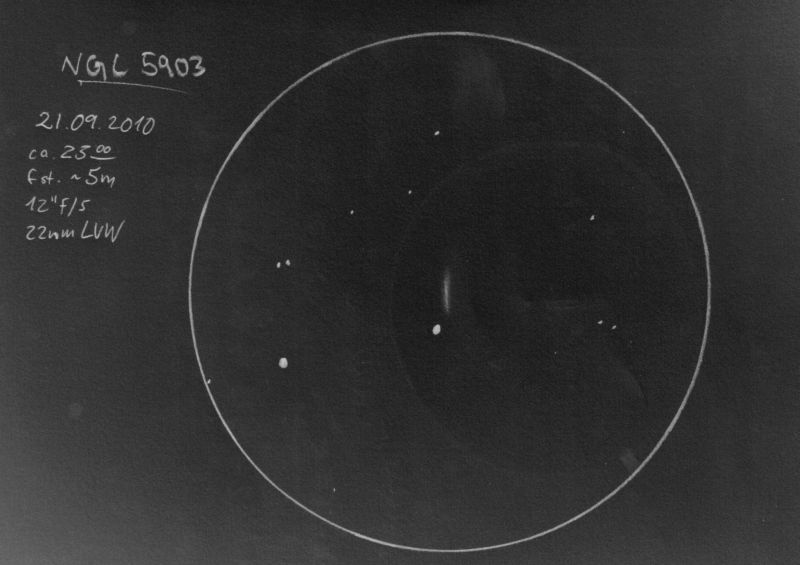 NGC 5903
21.09.2010
ca. 23 00
fst. ~5m
12" f/5
22mm LVW